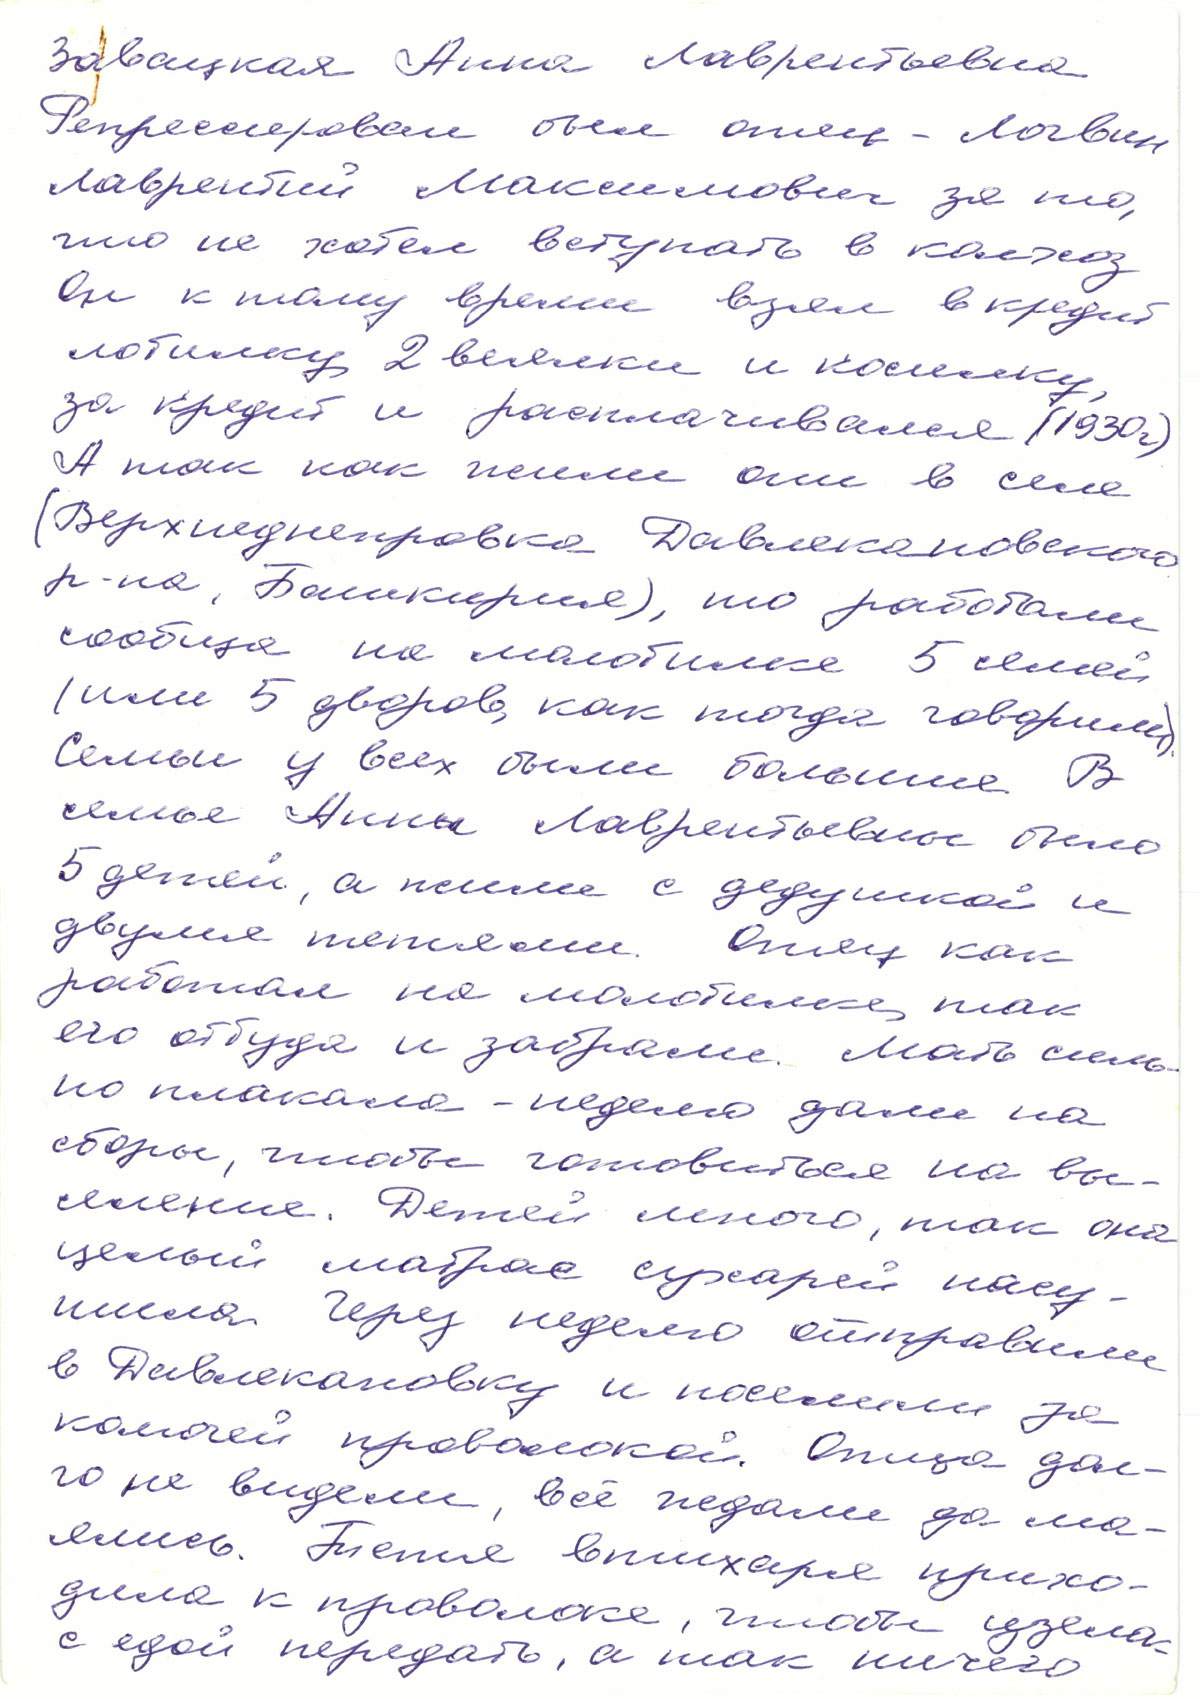 Завацкая Анна Лаврентьевна
Репрессирован был отец - Логвин
Лаврентий Максимович за то,
что не хотел вступать в колхоз
Он к тому время взял в кредит
лотилку, 2 веялки и косилку,
за кредит и расплачивался (1930г)
А так как жили они в селе
(Верхнеднепровка Давлекановского
р-на, Башкирия), то работали
сообща на молотилке 5 семей
(или 5 дворов, как тогда говорили).
Семьи у всех были большие. В
семье Анны Лаврентьевны было
5 детей, а жили с дедушкой и
двумя тетями. Отец как
работал на молотилке, так
его оттуда и забрали. Мать силь-
но плакала - неделю дали на
сборы, чтобы готовиться на вы-
селение. Детей много, так она
целый матрас сухарей насу-
шила. Через неделю отправили
в Давлекановку и поселили за
колючей проволокой. Отца дол-
го не видели, всё ждали да ма-
ялись. Тетя втихаря прихо-
дила к проволоке, чтобы узелок
с едой передать, а так ничего